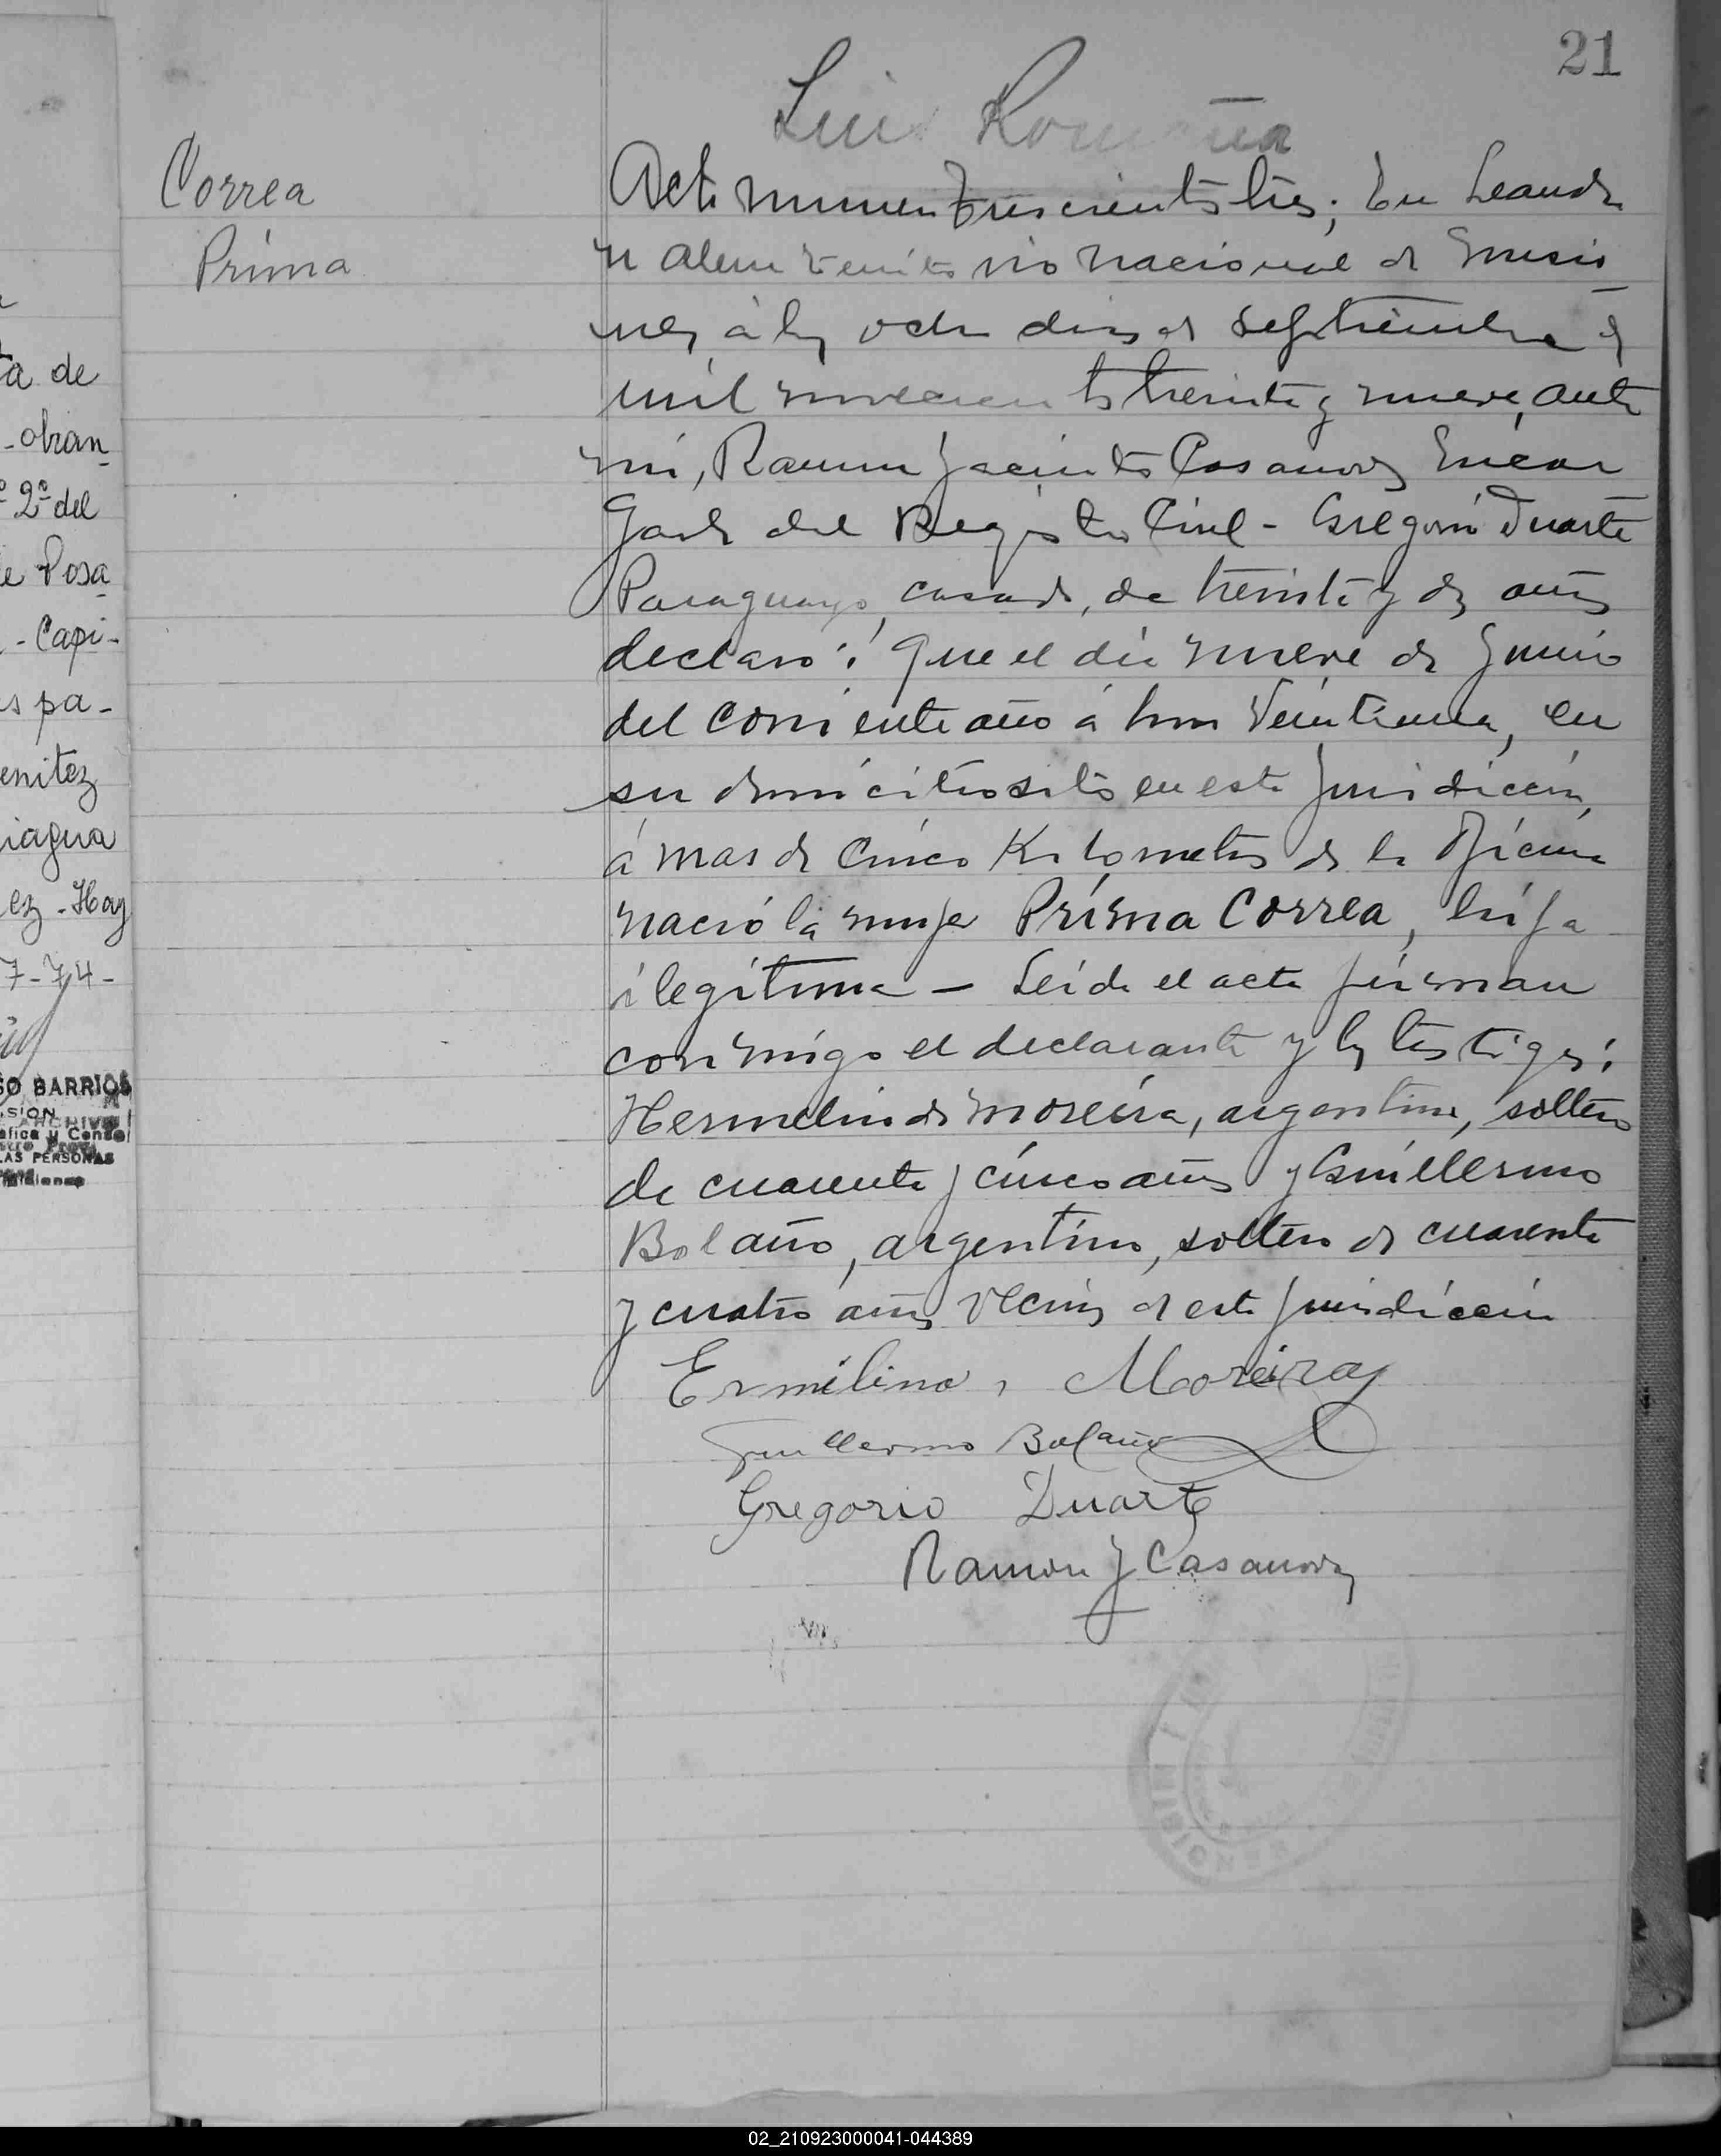 21
Luis Romaña
Correa
Prima
Acta numero trescientos tres; En Leandro
N Alem territorio nacional de Misio
nes, á los ocho dias de Septiembre de
mil novecientos treinta y nueve, ante
mi, Ramon Jacinto Casanova Encar
gado del Registro Civil - Gregorio Duarte
Paraguayo, casado, de treinta y dos años
declaró: Que el dia nueve de Junio
del corriente año á hora veintiuna, en
su domicilio sito en esta jurisdiccion,
á mas de Cinco Kilometros de la Oficina
nació la mujer Prima Correa, hija
ilegitima - Leida el acta firman
conmigo el declarante y los testigos:
Hermelindo Moreira, argentino, soltero
de cuarenta y cinco años y Guillermo
Bolaño, argentino, soltero de cuarenta
y cuatro años vecinos de esta jurisdiccion
Ermilino, Moreira
Guillermo Bolaño
Gregorio Duarte
Ramon J Casanova
MISIONES
ta de
-obran
2º del
e Posa
-Capi-
s pa-
enitez
iagua
ez-Hay
7-74-
SO BARRIOS
ARCHIVO
LAS PERSONAS
02_210923000041-044389